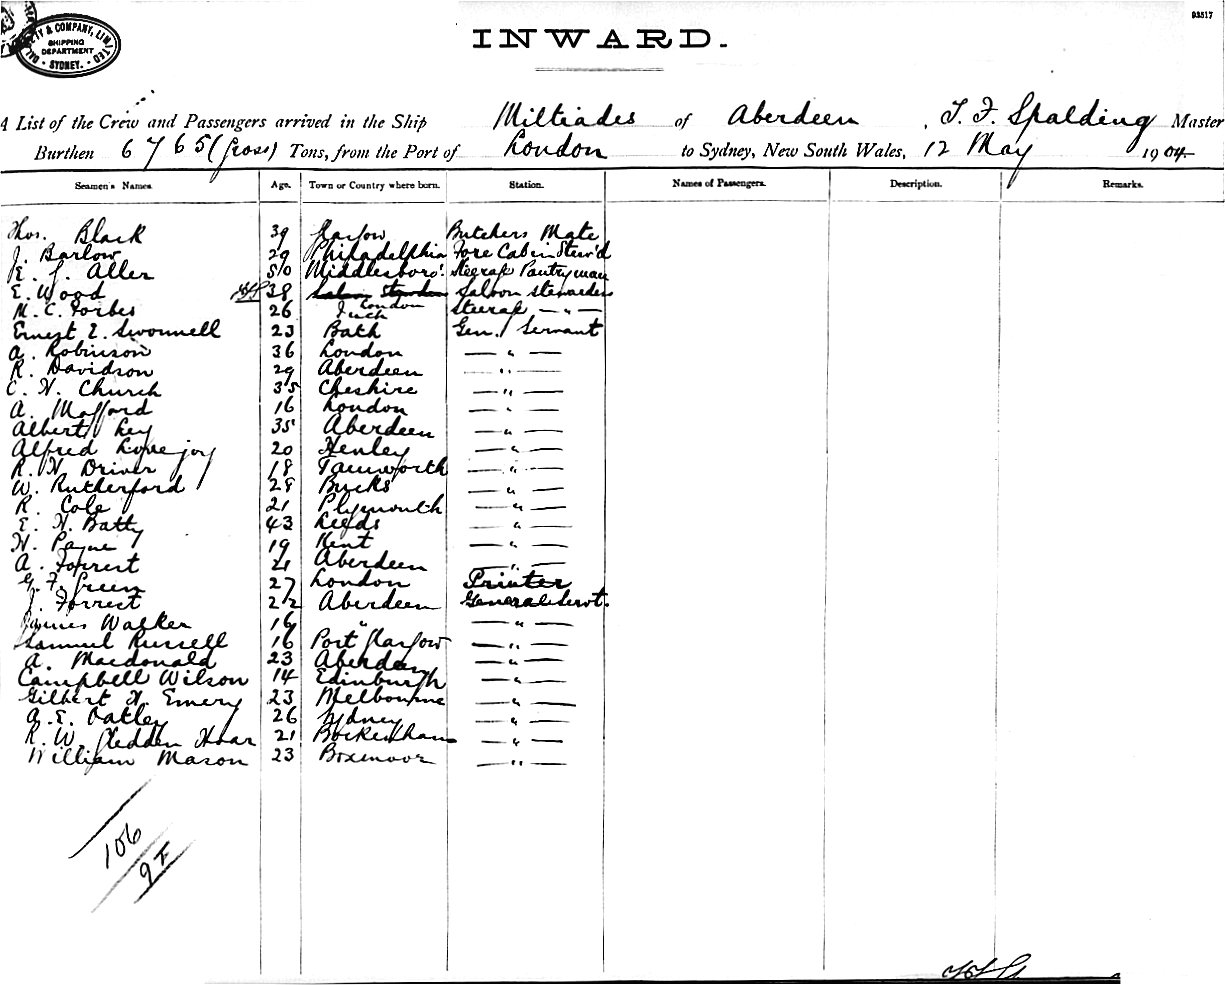 93517
DALGETY & COMPANY, LIMITED
SHIPPING
DEPARTMENT
SYDNEY.
INWARD.
A List of the Crew and Passengers arrived in the Ship Miltiades of Aberdeen, T. F. Spalding Master
Burthen 6765 (gross) Tons, from the Port of London to Sydney, New South Wales, 12 May 1904
Seamen's Names. Age. Town or Country where born. Station. Names of Passengers. Description. Remarks.
Thos. Black 39 Glasgow Butchers Mate
J. Barlow 29 Philadelphia Fore Cabin Stew'd
E. J. Aller 50 Middlesboro'. Steerage Pantryman
E. Wood 38 Saloon London Saloon stewardess
M. C. Forbes 26 Inch Steerage — " —
Ernest E. Swonnell 23 Bath Gen. Servant
A. Robinson 36 London — " —
R. Davidson 29 Aberdeen — " —
C. H. Church 35 Cheshire — " —
A. Mafford 16 London — " —
Albert Ley 35 Aberdeen — " —
Alfred Lovejoy 20 Henley — " —
R. H. Driver 18 Tamworth — " —
W. Rutherford 28 Bucks — " —
R. Cole 21 Plymouth — " —
E. H. Batty 43 Leeds — " —
H. Payne 19 Kent — " —
A. Forrest 21 Aberdeen — " —
G. F. Green 27 London Printer
J. Forrest 22 Aberdeen General Servt.
James Walker 16 " — " —
Samuel Russell 16 Port Glasgow — " —
A. Macdonald 23 Aberdeen — " —
Campbell Wilson 14 Edinburgh — " —
Gilbert H. Emery 23 Melbourne — " —
A. E. Oatley 26 Sydney — " —
R. W. Gledden Hoar 21 Bockenham — " —
William Mason 23 Boxmoor — " —
106